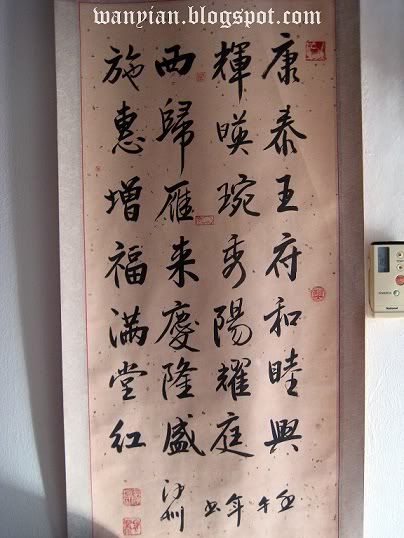 wanyian.blogspot.com
康泰王府和睦興
輝暎琬秀陽耀庭
西歸雁来慶隆盛
施惠增福满堂紅
午年书
沙州
National